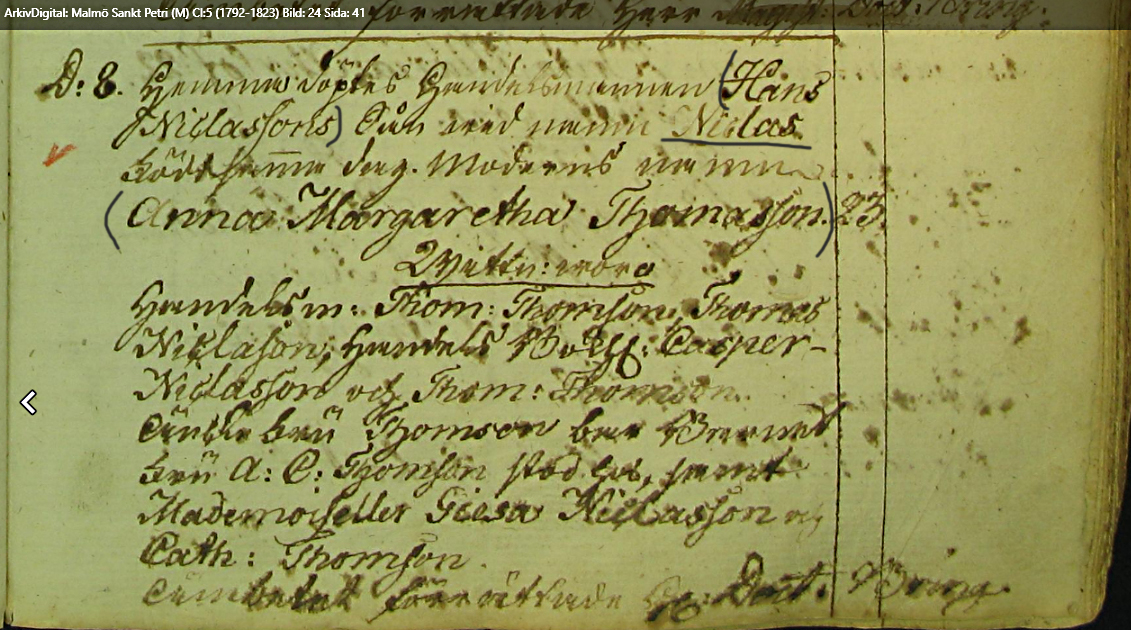 ArkivDigital: Malmö Sankt Petri (M) CI:5 (1792-1823) Bild: 24 Sida: 41
förrättade Herr Doct. Bring.
D: 8. Hemma döptes Handelsmannen (Hans
Niclassons) Son wid namn Niclas
född samma dag. Moderns namn
(Anna Margaretha Thomasson.) 23.
Wittn: woro
Handelsm: Thom: Thomson, Thomas
Niclason, Handels Bokh: Casper-
Niclasson och Thom: Thomson.
Enke fru Thomson bar Barnet
fru A: C: Thomson stod hos, samt
Mademoiseller Giesa Niclasson og
Cath: Thomson.
Embetet förrättade Hr. Doct. Bring.